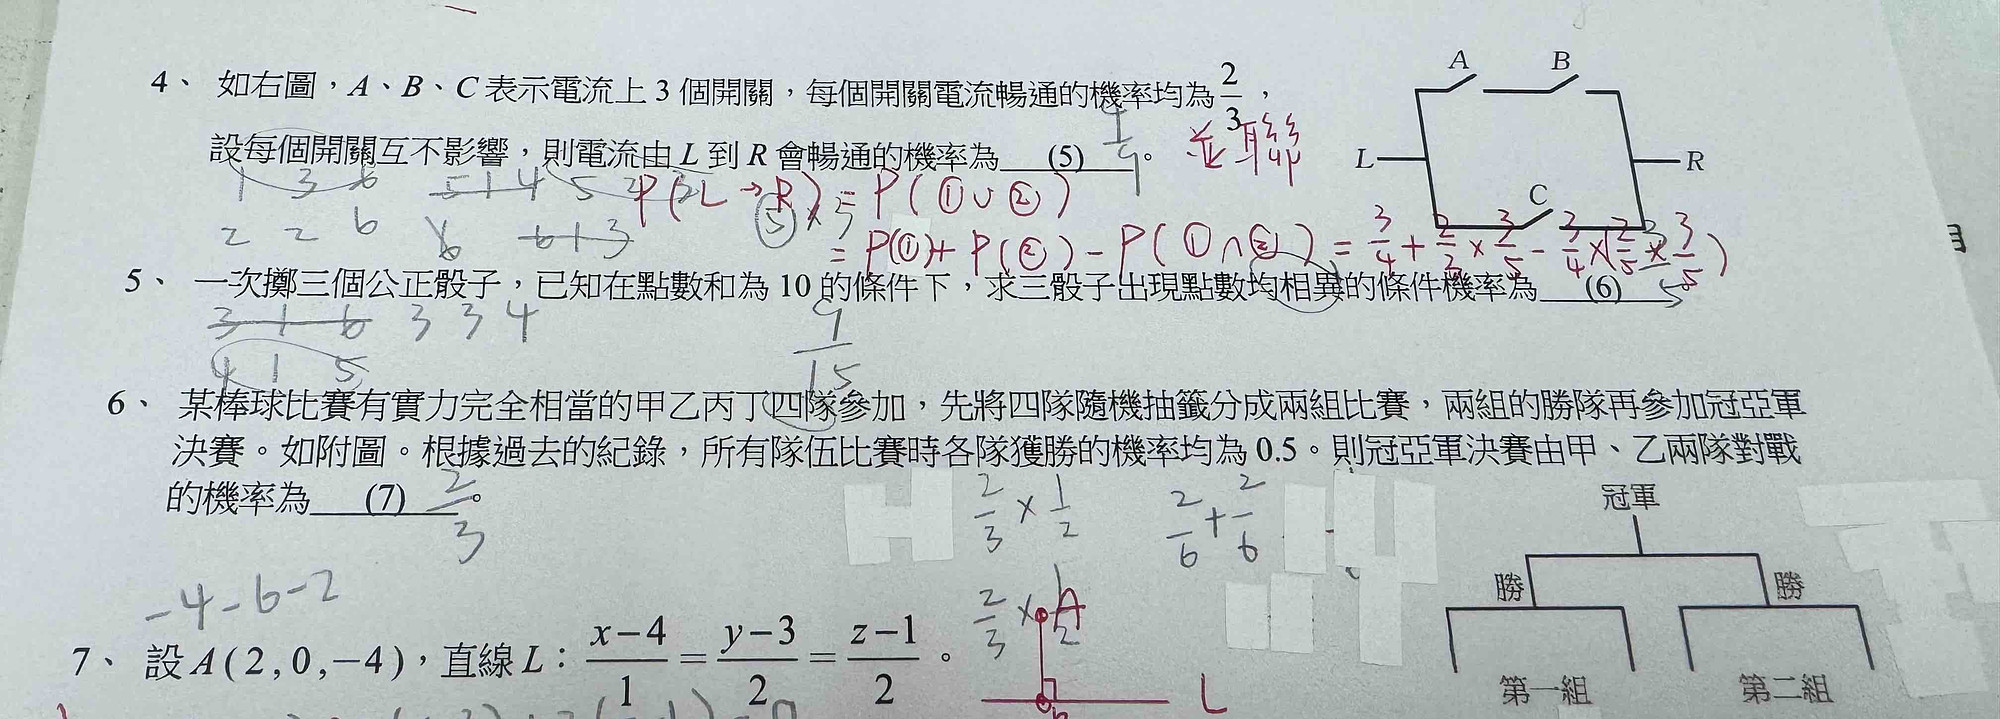 4、如右圖，A、B、C 表示電流上 3 個開關，每個開關電流暢通的機率均為 2/3，
設每個開關互不影響，則電流由 L 到 R 會暢通的機率為 (5) 。
並聯
A B
L R
C
1 3 6 5 1 4 5
P(L→R) = P(①∪②)
2 2 6
= P(①)+P(②)-P(①∩②) =
5、一次擲三個公正骰子，已知在點數和為 10 的條件下，求三骰子出現點數均相異的條件機率為 (6) 。
3 1 6 3 3 4
9/15
4 1 5
6、某棒球比賽有實力完全相當的甲乙丙丁四隊參加，先將四隊隨機抽籤分成兩組比賽，兩組的勝隊再參加冠亞軍
決賽。如附圖。根據過去的紀錄，所有隊伍比賽時各隊獲勝的機率均為 0.5。則冠亞軍決賽由甲、乙兩隊對戰
的機率為 (7) 。
2/3
2/3 × 1/2
2/6 + 2/6
冠軍
勝 勝
第一組 第二組
-4-6-2
2/3 ×
A
7、設 A(2,0,-4)，直線 L：(x-4)/1 = (y-3)/2 = (z-1)/2 。
L